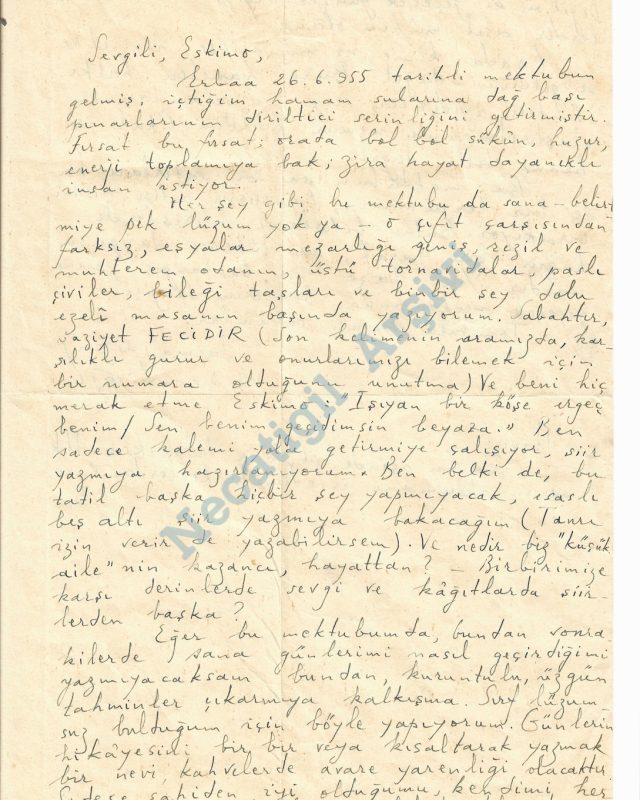 Sevgili, Eskimo,
Erbaa 26.6.955 tarihli mektubun
gelmiş, içtiğim hamam sularına dağ başı
pınarlarının diriltici serinliğini getirmiştir.
Fırsat bu fırsat; orada bol bol sükûn, huzur,
enerji toplamıya bak; zira hayat dayanıklı
insan istiyor.
Her şey gibi bu mektubu da sana – belirt
miye pek lüzum yok ya – o çıfıt çarşısından
farksız, eşyalar mezarlığı geniş, rezil ve
muhterem odanın, üstü tornavidalar, paslı
çiviler, bileği taşları ve binbir şey dolu
ezelî masanın başında yazıyorum. Sabahtır,
vaziyet FECİDİR (Son kelimenin aramızda, kar-
şılıklı gurur ve onurlarımızı bilemek için
bir numara olduğunu unutma) Ve beni hiç
merak etme Eskimo: Işıyan bir köşe ergeç
benim/ Sen benim geçidimsin beyaza." Ben
sadece kalemi yola getirmiye çalışıyor, şiir
yazmıya hazırlanıyorum. Ben belki de, bu
tatil başka hiçbir şey yapmıyacak, esaslı
beş altı şiir yazmıya bakacağım (Tanrı
izin verir de yazabilirsem). Ve nedir biz "küçük
aile"nin kazancı, hayattan? – Birbirimize
karşı derinlerde sevgi ve kâğıtlarda şiir-
lerden başka?
Eğer bu mektubumda, bundan sonra
kilerde sana günlerimi nasıl geçirdiğimi
yazmıyacaksam bundan, kuruntulu, üzgün
tahminler çıkarmıya kalkışma. Sırf lüzum-
suz bulduğum için böyle yapıyorum. Günlerin
hikâyesini bir bir veya kısaltarak yazmak
bir nevi, kahvelerde avare yarenliği olacaktır.
Sadece sahiden iyi olduğumu, kendimi her
Necatigil Arşivi